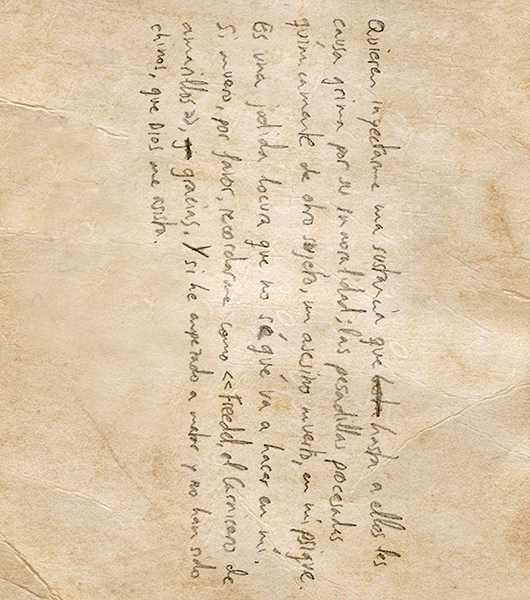 Quieren inyectarme una sustancia que hasta a ellos les
causa grima por su inmoralidad; las pesadillas pocesadas
químicamente de otro sujeto, un asesino muerto, en mi psique.
Es una jodida locura que no sé qué va a hacer en mí.
Si muero, por favor, recordarme como <<Freedel, el Carnicero de
amarillos>>, gracias. Y si he empezado a matar y no han sido
chinos, que Dios me asista.